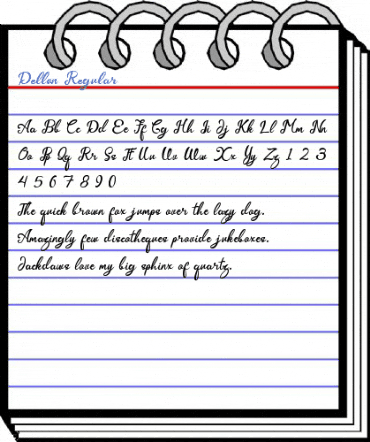 Dellon Regular
Aa Bb Cc Dd Ee Ff Gg Hh Ii Jj Kk Ll Mm Nn
Oo Pp Qq Rr Ss Tt Uu Vv Ww Xx Yy Zz 1 2 3
4 5 6 7 8 9 0
The quick brown fox jumps over the lazy dog.
Amazingly few discotheques provide jukeboxes.
Jackdaws love my big sphinx of quartz.